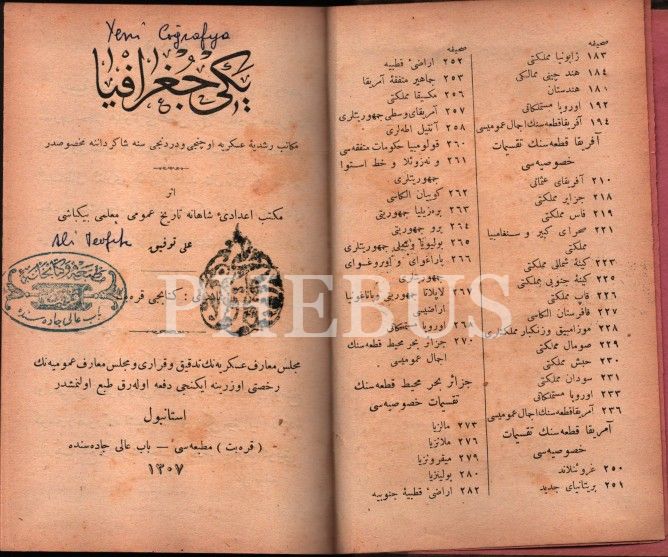 Yeni Coğrafya
یکی جغرافیا
مكاتب رشدیهٔ عسكریه اوچنجی ودردنجی سنه شاكرداننه مخصوصدر
اثر
مكتب اعدادیٔ شاهانه تاریخ عمومی معلمی بیكباشی
علی توفیق
Ali Tevfik
باب عالی جاده سنده
كتابجی قره
PHEBUS
مجلس معارف عسكریه نك تدقیق وقراری ومجلس معارف عمومیه نك
رخصتی اوزرینه ایكنجی دفعه اوله رق طبع اولنمشدر
استانبول
( قره بت ) مطبعه سی — باب عالی جاده سنده
١٣٠٧
صحیفه
١٨٣ ژاپونیا مملكتی
١٨٤ هند چینی ممالكی
١٨١ هندستان
١٩٢ اوروپا مستملكاتی
١٩٤ آفریقا قطعه سنك اجمال عمومیسی
آفریقا قطعه سنك تقسیمات
خصوصیه سی
٢١٠ آفریقای عثمانی
٢١٨ جزایر مملكتی
٢١٩ فاس مملكتی
٢٢١ صحرای كبیر و سنغامبیا
مملكتی
٢٢٣ كینهٔ شمالی مملكتی
٢٢٥ كینهٔ جنوبی مملكتی
٢٢٦ قاپ مملكتی
٢٢٧ قافرستان اراضیسی
٢٢٨ موزامبیق وزنكبار مملكتلری
٢٢٩ صومال مملكتی
٢٣٠ حبش مملكتی
٢٣١ سودان مملكتی
٢٣٣ اوروپا مستملكاتی
٢٣٦ آمریقا قطعه سنك اجمال عمومیسی
آمریقا قطعه سنك تقسیمات
خصوصیه سی
٢٥٠ غروئنلاند
٢٥١ بریتانیای جدید
صحیفه
٢٥٢ اراضیٔ قطبیه
٢٥٣ جماهیر متفقهٔ آمریقا
٢٥٦ مكسیقا مملكتی
٢٥٧ آمریقای وسطی جمهوریتلری
٢٥٨ آنتیل اطه لری
٢٦٠ قولومبیا حكومات متفقه سی
٢٦١ ونه زوئلا و خط استوا
جمهوریتلری
٢٦٢ كوییان الكاسی
٢٦٣ برزیلیا جمهوریتی
٢٦٤ پرو جمهوریتی
٢٦٥ بولیویا وشیلی جمهوریتلری
٢٦٦ پاراغوای و اوروغوای
جمهوریتلری
٢٦٧ لاپلاتا جمهوریتی وپاتاغونیا
اراضیسی
اوروپا مستملكاتی
٢٧٠ جزائر بحر محیط قطعه سنك
اجمال عمومیسی
جزائر بحر محیط قطعه سنك
تقسیمات خصوصیه سی
٢٧٣ مالزیا
٢٧٦ ملانزیا
٢٧٩ میقرونزیا
٢٨٠ پولینزیا
٢٨٢ اراضیٔ قطبیهٔ جنوبیه